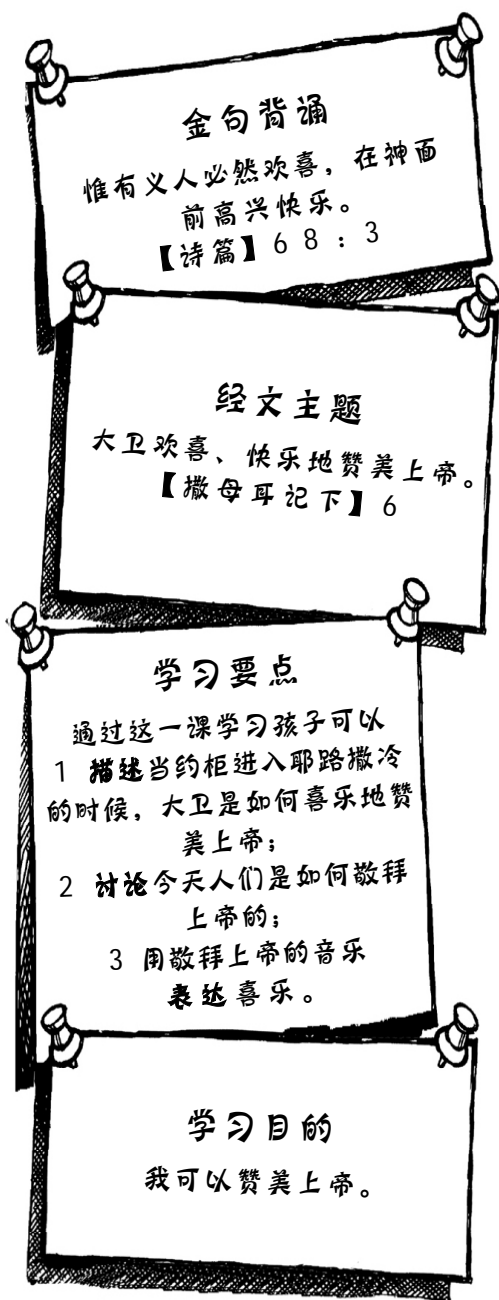 金句背诵
惟有义人必然欢喜，在神面
前高兴快乐。
【诗篇】68：3
经文主题
大卫欢喜、快乐地赞美上帝。
【撒母耳记下】6
学习要点
通过这一课学习孩子可以
1 描述当约柜进入耶路撒冷
的时候，大卫是如何喜乐地赞
美上帝；
2 讨论今天人们是如何敬拜
上帝的；
3 用敬拜上帝的音乐
表达喜乐。
学习目的
我可以赞美上帝。